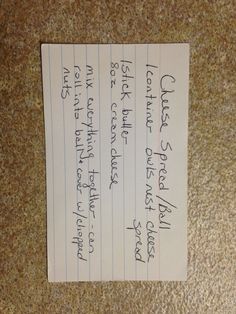 Cheese Spread/Ball
1 container owls nest cheese
spread
1 stick butter
8oz cream cheese
mix everything together - can
roll into ball & cover w/ chopped
nuts